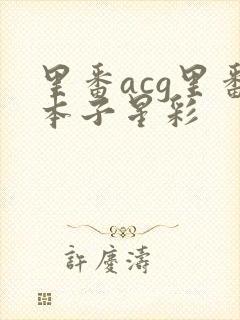 里番acg里番
本子星彩
許慶濤